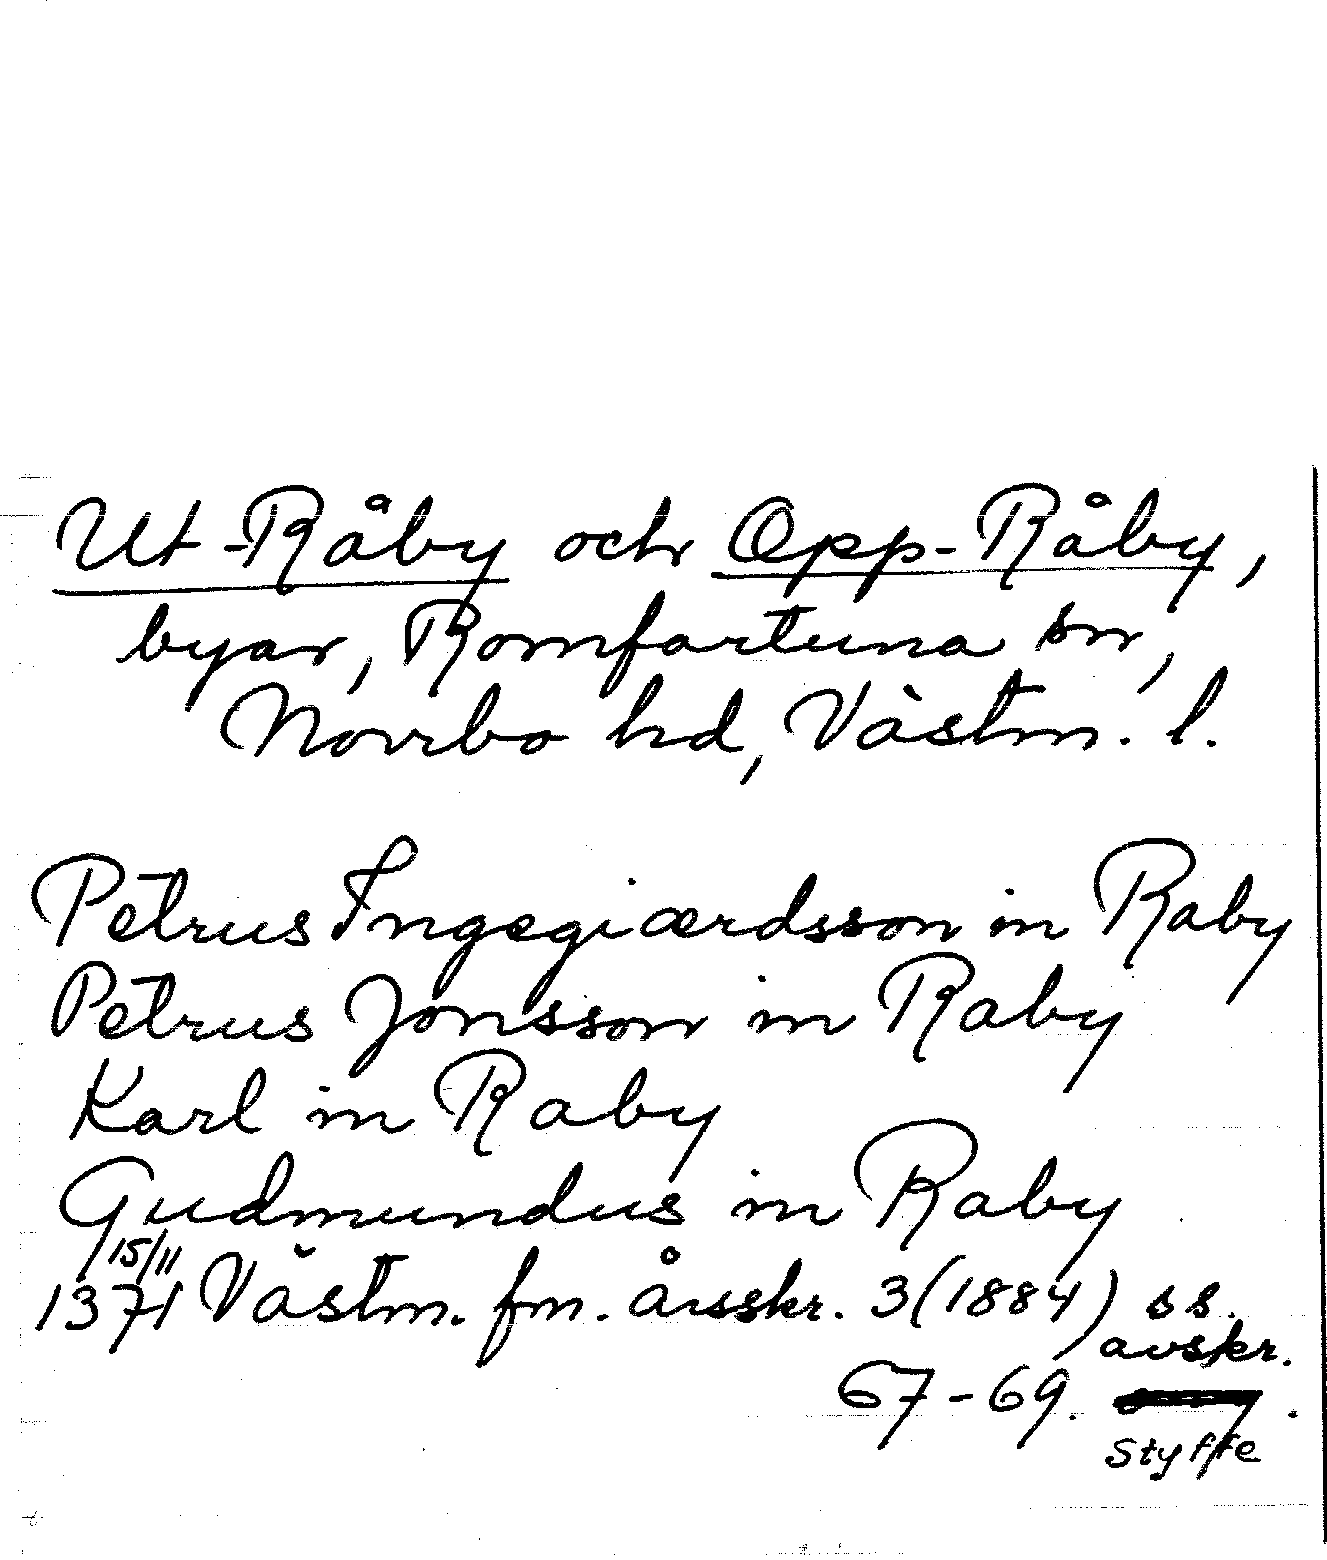 Ut-Råby och Opp-Råby,
byar, Romfartuna sn,
Norrbo hd, Västm. l.
Petrus Ingegiærdsson in Raby
Petrus Jonsson in Raby
Karl in Raby
Gudmundus in Raby
15/11
1371 Västm. fm. årsskr. 3 (1884) ss.
avskr.
67-69.
Styffe